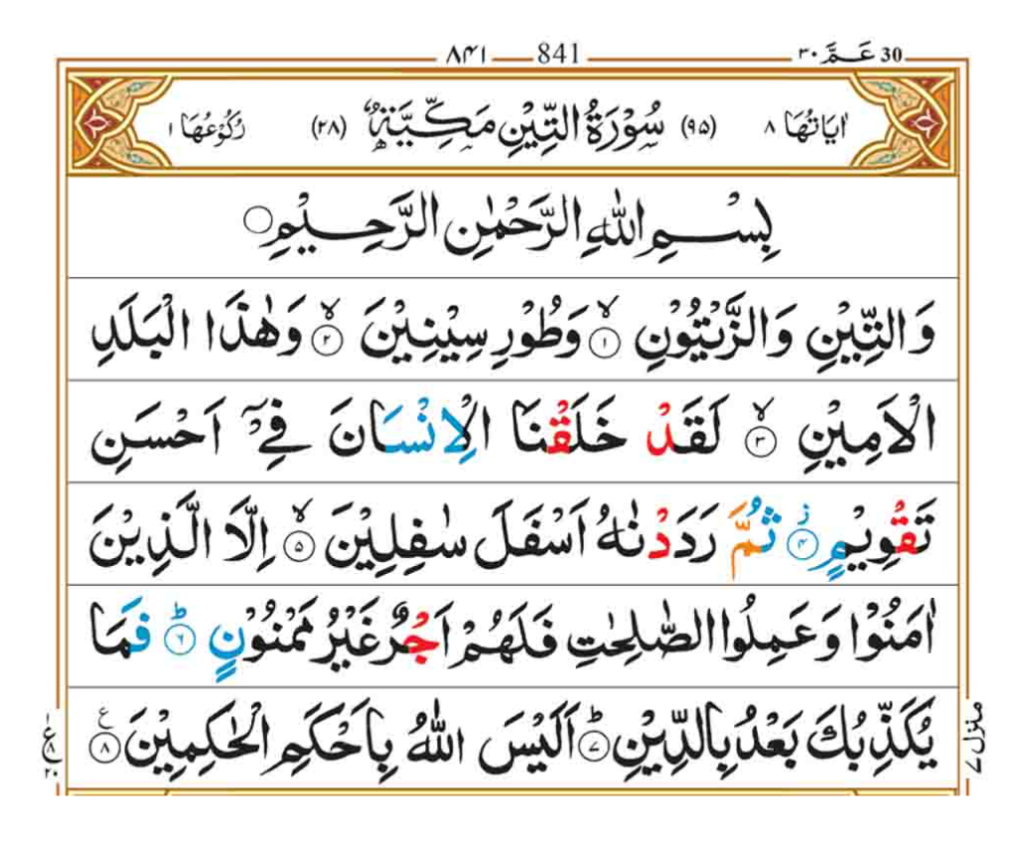 ٨٤١ 841 30 عَمَّ ٣٠
اٰيَاتُهَا ٨ (٩٥) سُوْرَةُ التِّيْنِ مَكِّيَّةٌ (٢٨) رُكُوْعُهَا ١
بِسْمِ اللّٰهِ الرَّحْمٰنِ الرَّحِيْمِ
وَالتِّيْنِ وَالزَّيْتُوْنِ ۙ‏﴿۱﴾ وَطُوْرِ سِيْنِيْنَ ۙ‏﴿۲﴾ وَهٰذَا الْبَلَدِ
الْاَمِيْنِ ۙ‏﴿۳﴾ لَقَدْ خَلَقْنَا الْاِنْسَانَ فِيْۤ اَحْسَنِ
تَقْوِيْمٍ ز ﴿۴﴾ ثُمَّ رَدَدْنٰهُ اَسْفَلَ سٰفِلِيْنَ ۙ‏﴿۵﴾ اِلَّا الَّذِيْنَ
اٰمَنُوْا وَعَمِلُوا الصّٰلِحٰتِ فَلَهُمْ اَجْرٌ غَيْرُ مَمْنُوْنٍ ؕ‏﴿۶﴾ فَمَا
يُكَذِّبُكَ بَعْدُ بِالدِّيْنِ ؕ‏﴿۷﴾ اَلَيْسَ اللّٰهُ بِاَحْكَمِ الْحٰكِمِيْنَ ع ﴿۸﴾
منزل ٧
ع ١ ٨ ٢٠